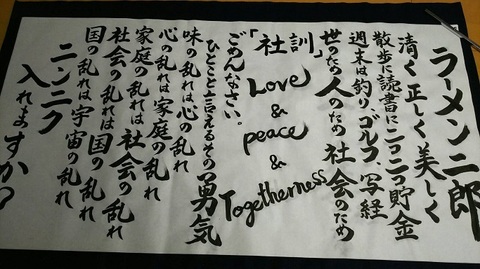 ラーメン二郎
清く正しく美しく
散歩に読書にニコニコ貯金
週末は釣り、ゴルフ、写経
世のため人のため社会のため
「社訓」
Love & peace & Togetherness
ごめんなさい。
ひとこと言えるその勇気
味の乱れは心の乱れ
心の乱れは家庭の乱れ
家庭の乱れは社会の乱れ
社会の乱れは国の乱れ
国の乱れは宇宙の乱れ
ニンニク
入れますか?